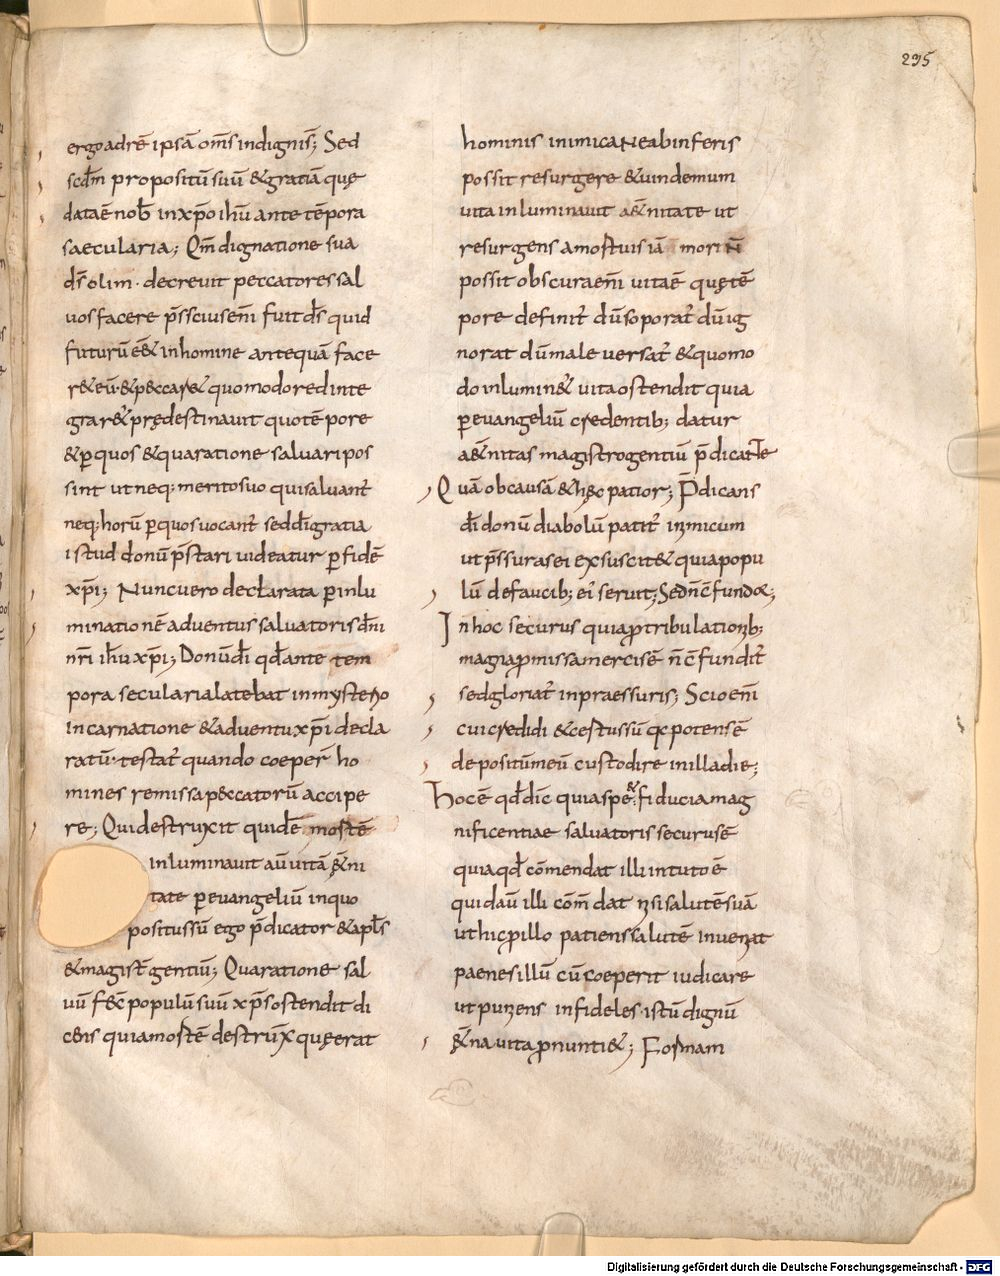 295
ergo ad rē ipsā om̄s indignis̄; Sed
scd̄m propositū suū & gratiā quę
data ē nob̄ in xp̄o ih̄u ante tēpora
saecularia; Qm̄ dignatione sua
ds̄ olim · decrevit peccatores sal
uos facere p̄ssciusem̄ fuit ds̄ quid
futurū eēt in homine antequā face
r& eū · & pecca& quomodo redinte
grar& p̨destinauit quo tēpore
& ꝑ quos & qua ratione saluari pos
sint ut neq; merito suo qui saluant̄
neq; horū ꝑ quos uocant̄ sed dī gratia
istud donū p̄stari uideatur ꝑ fidē
xp̄i; Nunc uero declarata ꝑ inlu
minationē aduentus saluatoris dn̄i
nr̄i ih̄u xp̄i; Donū dī qd̄ ante tem
pora secularia latebat in mysterio
incarnatione & aduentu xp̄i decla
ratū · testat̄ quando coeper̄ ho
mines remissa peccatorū accipe
re; Qui destruxit quidē mortē
inluminauit aū uitā &̄ni
tate ꝑ euangeliū in quo
positus sū ego p̄dicator & apls̄
& magist̄ gentiū; Qua ratione sal
uū fec̄ populū suū xp̄s ostendit di
cens quia mortē destrūx quę erat
hominis inimica Ne ab inferis
possit resurgere & uindemum
uita inluminauit a&̄nitate ut
resurgens a mortuis iā mori N̄
possit obscura em̄ uita ē quę tē
pore definit̄ dū soporat̄ dū ig
norat dū male uersat̄ & quomo
do inlumin& uita ostendit quia
ꝑ euangeliū credentib; datur
a&̄nitas magistro gentiū p̄dicante
Quā ob causā & hęc patior; P̄dicans
dī donū diabolū patit̄ inimicum
ut p̄ssuras ei exsuscit& quia popu
lū de faucib; ei' seruit; Sed n̄ c̄fundor;
In hoc securus quia ꝓ tribulationib;
magia ꝓmissa mercis ē n̄ c̄fundit̄
sed gloriat̄ in praessuris; Scio em̄
cui credidi & certus sū qꝛ potens ē
depositū meū custodire in illa die;
Hoc ē qd̄ dic̄ quia spe & fiducia mag
nificentiae saluatoris securus ē
quia qd̄ cōmendat illi in tuto ē
qui daū illi com̄dat nisi salutē suā
ut hic ꝓ illo patiens salutē inueniat
paenes illū cū coeperit iudicare
ut puniens infideles · istū dignū
&̄na uita ꝓnunti&; Formam
Digitalisierung gefördert durch die Deutsche Forschungsgemeinschaft - DFG